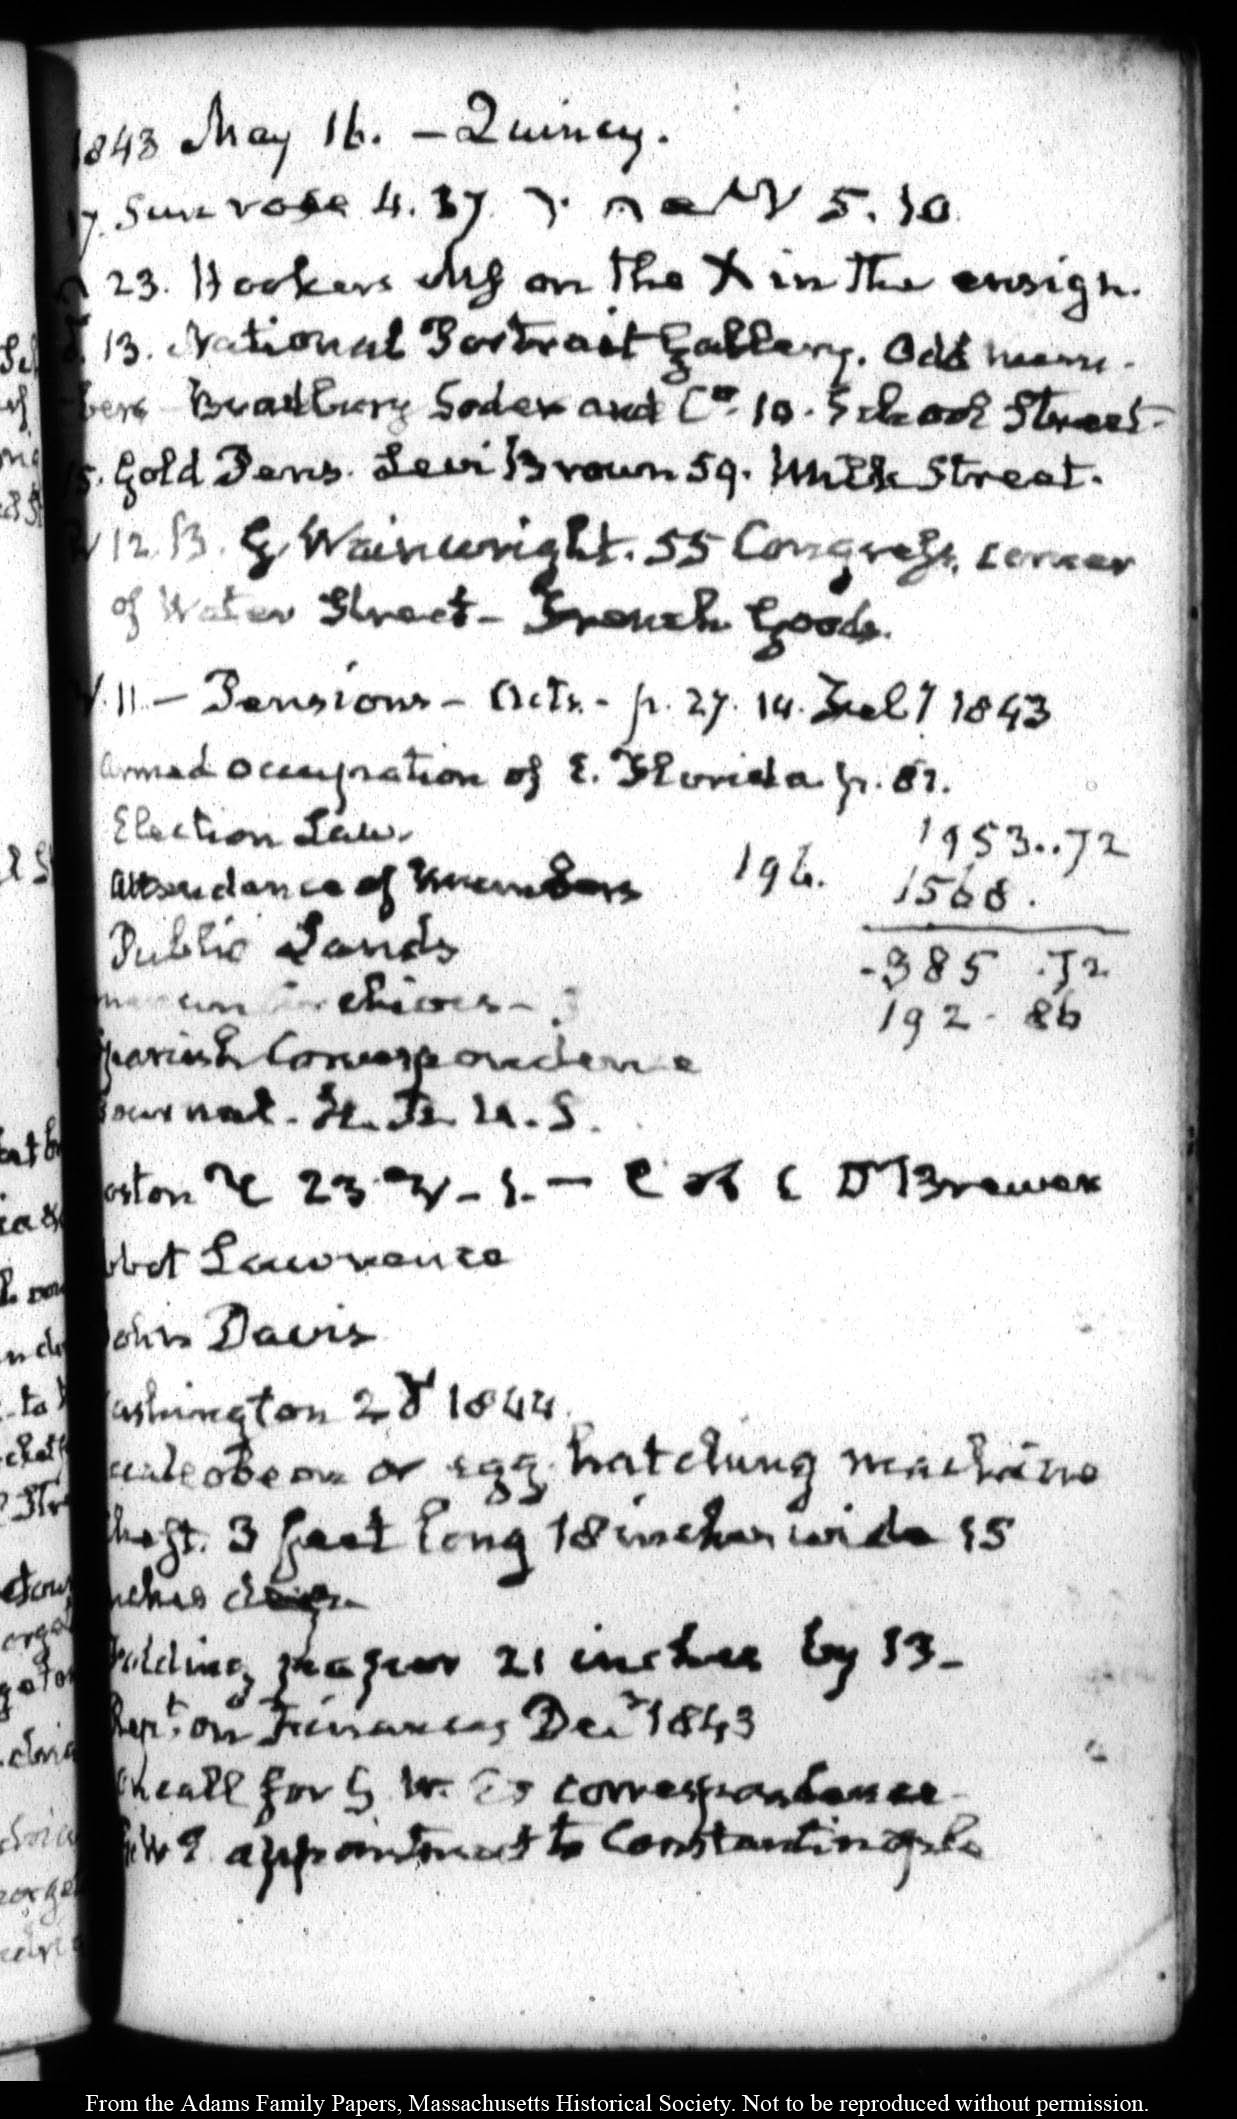 1843 May 16. – Quincy.
17. Sun rose 4.37 5.10
23. Hookers on the X in the ensign.
13. National Portrait Gallery. Odd num-
bers Bradbury Soden and Co. 10. School Street.
15. Gold Pens. Levi Brown 59. Milk Street.
12. B. G Wainwright. 55 Congress, corner
of Water Street – French Goods.
11. – Pensions – Acts. – p. 27. 14. 1843
Armed occupation of E. Florida p. 82.
Election Law. 1953..72
Attendance of Members 196. 1568.
Public Lands -385 .72
192. 86
Spanish Correspondence
Journal. H. R. U. S.
oston 23 – – C of C Dr Brewer
bbot Lawrence
John Davis
ashington 1844
or egg hatching machine
3 feet long 18 inches wide 15
nches deep
Folding paper 21 inches by 13 –
Rept. on Finances Dec 1843
call for G W. E's correspondence
G W E appointment to Constantinople
From the Adams Family Papers, Massachusetts Historical Society. Not to be reproduced without permission.